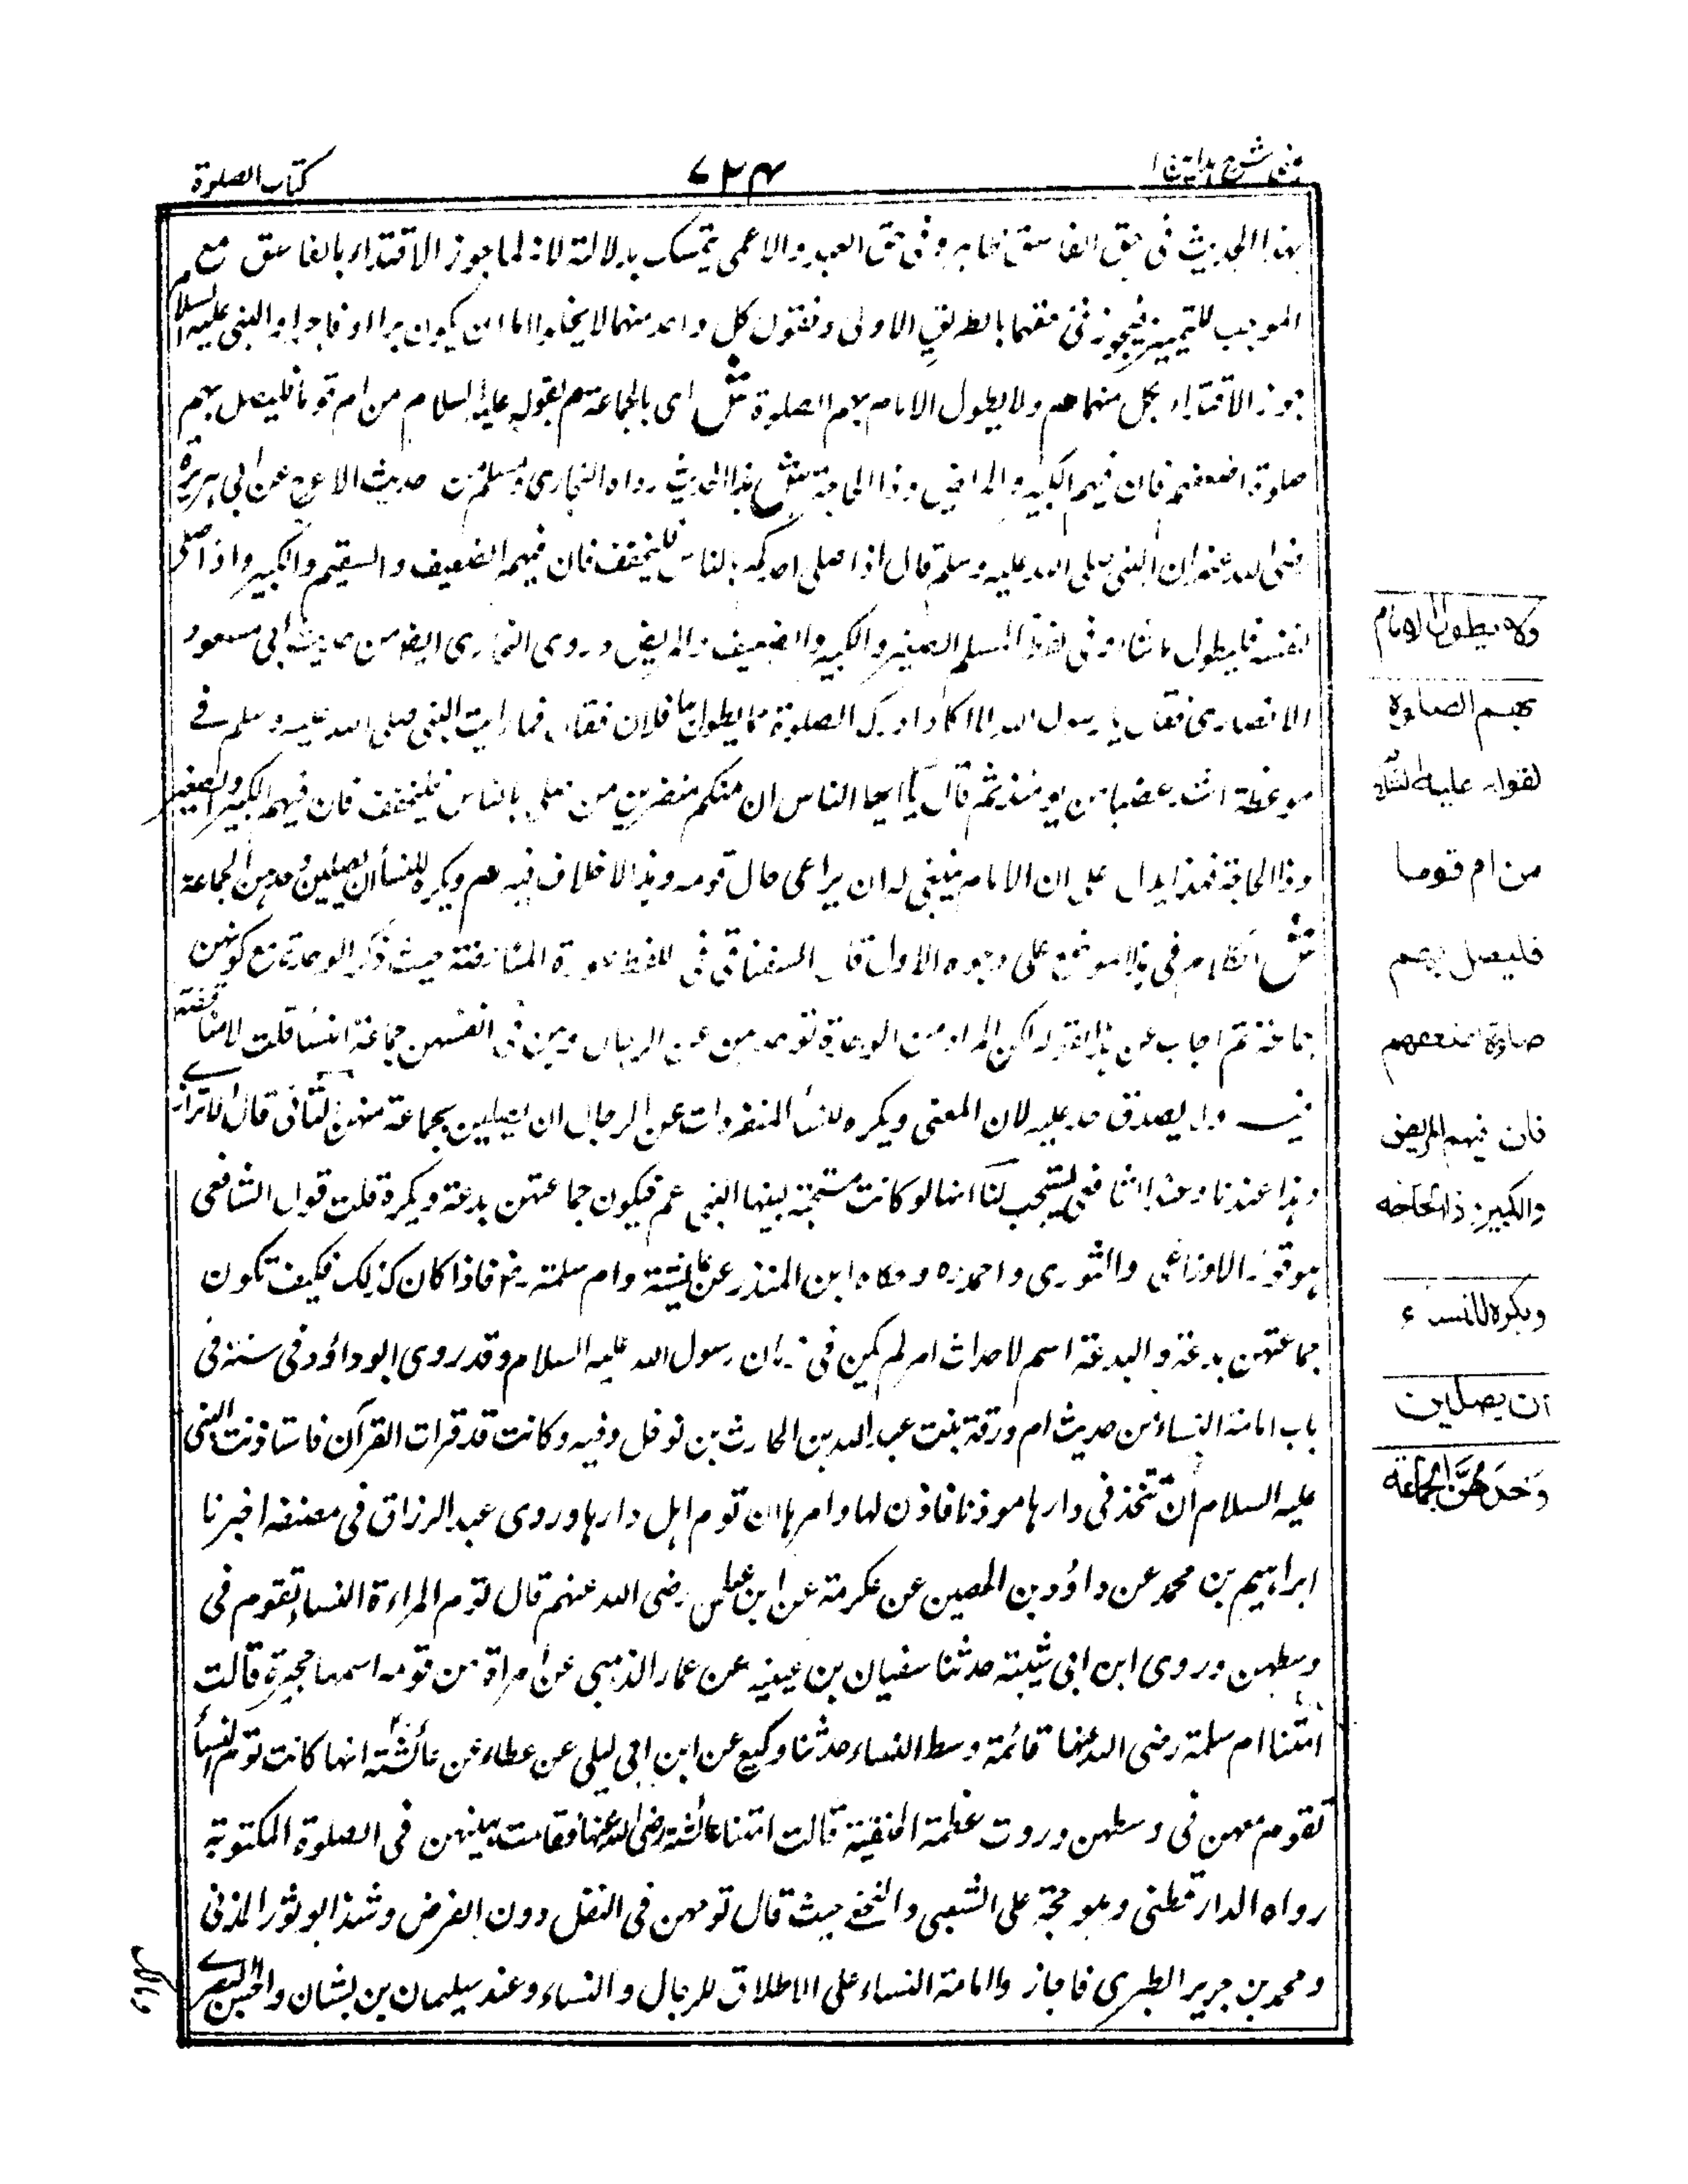 عینی شرح هدایة ج ا
۷۲۴
كتاب الصلوة
بهذا الحديث فى حق الفاسق ظاهر وفى حق العبد والاعمى يتمسك بدلالة لانه لما جوز الاقتداء بالفاسق مع
الموجب للتمييز فيجوز فى حقهما بالطريق الاولى ونقول كل واحد منهما لا يخلو اما ان يكون برا او فاجرا والنبى عليه السلام
جوز الاقتداء بكل منهما هم ولا يطول الامام بهم الصلوة ش اى بالجماعة هم لقوله عليه السلام من ام قوما فليصل بهم
صلوة اضعفهم فان فيهم الكبير والمريض وذا الحاجة ش هذا الحديث رواه البخارى ومسلم من حديث الاعرج عن ابى هريرة
رضى الله عنه ان النبى صلى الله عليه وسلم قال اذا صلى احدكم بالناس فليخفف فان فيهم الضعيف والسقيم والكبير واذا صلى
لنفسه فليطول ما شاء وفى لفظ لمسلم الصغير والكبير والضعيف والمريض وروى البخارى ايضا من حديث ابى مسعود
الانصارى فقال يا رسول الله لا اكاد ادرك الصلوة مما يطول بنا فلان فقال فما رأيت النبى صلى الله عليه وسلم فے
موعظة اشد غضبا من يومئذ ثم قال يا ايها الناس ان منكم منفرين من صلى بالناس فليخفف فان فيهم الكبير والصغير
وذا الحاجة فهذا يدل على ان الامام ينبغى له ان يراعى حال قومه وهذا لا خلاف فيه هم ويكره للنساء ان يصلين وحدهن الجماعة
ش الكلام فى هذا الموضع على وجوه الاول قال السغناقى فى اللفظ صورة المناقضة حيث ذكر الوحدة مع كونهن
جماعة ثم اجاب عن هذا بقوله لكن المراد من الوحدة توحدهن عن الرجال وهن فى انفسهن جماعة ايضا قلت لا مناقضة
فيه ولا يصدق حد عليه لان المعنى ويكره للنساء المنفردات عن الرجال ان يصلين بجماعة منهن الثانى قال الاترازے
وهذا عندنا وعند الشافعى يستحب لنا انها لو كانت مستحبة لبينها النبى عم فيكون جماعتهن بدعة ويكره قلت قول الشافعى
هو قول الاوزاعى والثورى واحمد رہ وحكاه ابن المنذر عن عايشة وام سلمة رض فاذا كان كذلك فكيف تكون
جماعتهن بدعة والبدعة اسم لاحداث امر لم يكن فى زمان رسول الله عليه السلام وقد روى ابو داؤد فى سننه فى
باب امامة النساء من حديث ام ورقة بنت عبد الله بن الحارث بن نوفل وفيه وكانت قد قرات القرآن فاستاذنت النبى
عليه السلام ان تتخذ فى دارها موذنا فاذن لها وامرها ان توم اهل دارها وروى عبد الرزاق فى مصنفه اخبرنا
ابراهيم بن محمد عن داؤد بن الحصين عن عكرمة عن ابن عباس رضى الله عنهم قال توم المراءة النساء تقوم فى
وسطهن وروى ابن ابى شيبة حدثنا سفيان بن عيينه عن عمار الذهبى عن امراة من قومه اسمها حجيرة قالت
امتنا ام سلمة رضى الله عنها قائمة وسط النساء حدثنا وكيع عن ابن ابى ليلى عن عطاء عن عائشة انها كانت توم النساء
تقوم معهن فى وسطهن وروت عظمة الحنفية قالت امتنا عائشة رضى الله عنها فقامت بينهن فى الصلوة المكتوبة
رواه الدارقطنى وهو حجة على الشعبى والنخعى حيث قال تومهن فى النفل دون الفرض وشذ ابو ثور المزنى
ومحمد بن جرير الطبرى فاجاز وا امامة النساء على الاطلاق للرجال والنساء وعند سليمان بن بشان والحسن البصرے
ولا يطول الامام
بهم الصلوة
لقوله عليه السلام
من ام قوما
فليصل بهم
صلوة اضعفهم
فان فيهم المريض
والكبير وذا الحاجة
ويكره للنساء
ان يصلين
وَحدَهُنَّ الجماعة